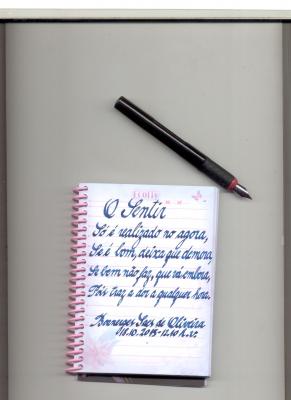 Ecolly
O Sentir
Só é realizado no agora,
Se é bom, deixa que demora,
Se bem não faz, que vá embora,
Pois traz a dor a qualquer hora.
de Oliveira
18.10.2015-12:10 h.